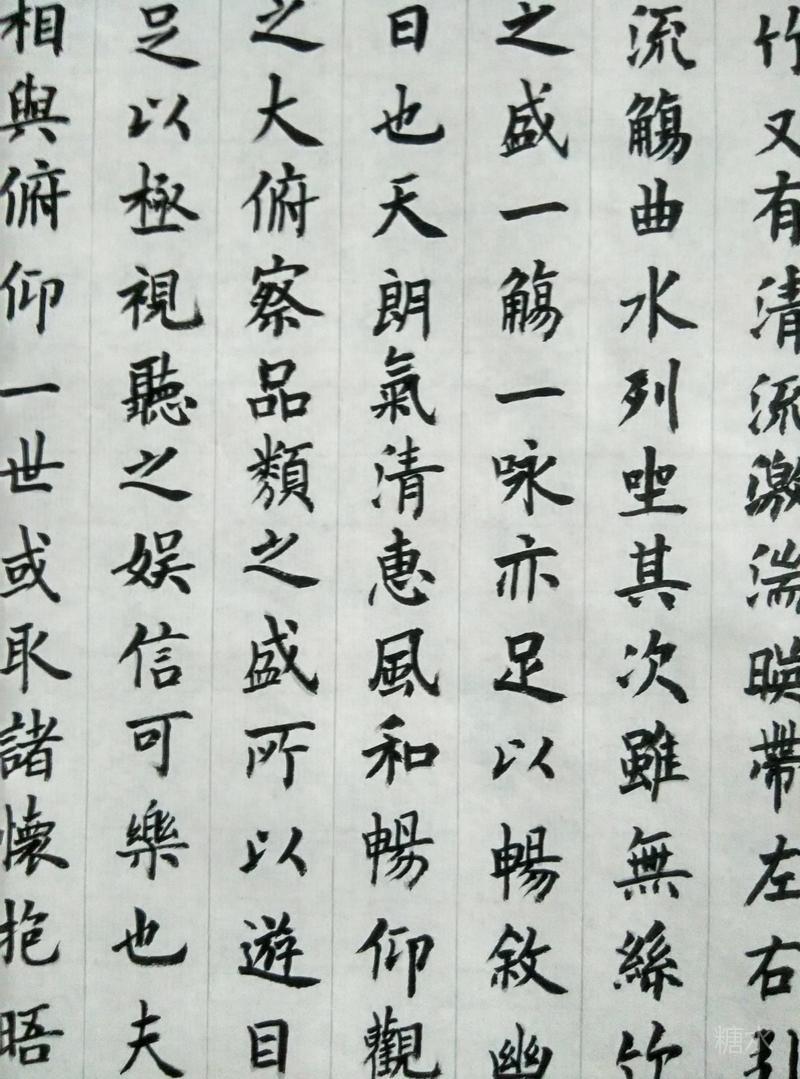 竹又有清流激湍暎帶左右引
流觴曲水列坐其次雖無絲竹
之盛一觴一咏亦足以暢敘幽
日也天朗氣清惠風和暢仰觀
之大俯察品類之盛所以遊目
足以極視聽之娱信可樂也夫
相與俯仰一世或取諸懷抱晤
糖水